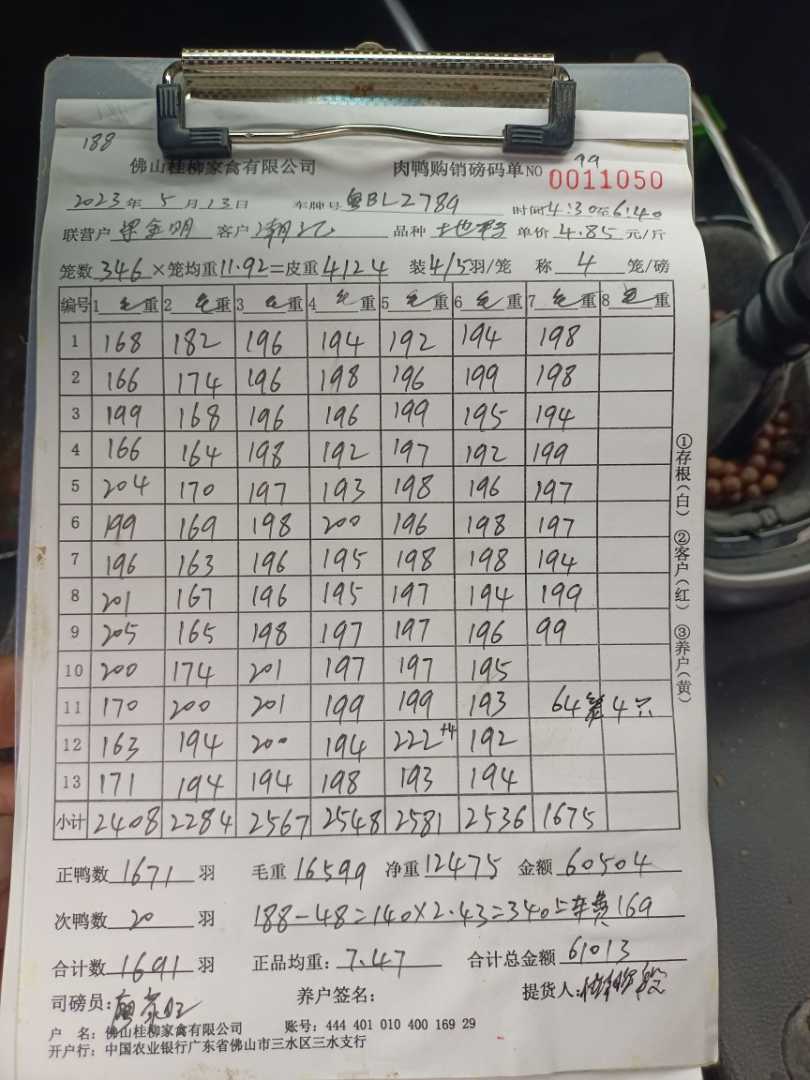 188
佛山桂柳家禽有限公司 肉鸭购销磅码单NO 99 0011050
2023年5月13日 车牌号 粤BL2789 时间4:30至6:40
联营户 梁金明 客户 潮记 品种 单价 4.85 元/斤
笼数 346 ×笼均重 11.92 =皮重 4124 装 4/5 羽/笼 称 4 笼/磅
编号 1 毛 重 2 毛 重 3 毛 重 4 毛 重 5 毛 重 6 毛 重 7 毛 重 8 毛 重
1 168 182 196 194 192 194 198
2 166 174 196 198 196 199 198
3 199 168 196 196 199 195 194
4 166 164 198 192 197 192 199
5 204 170 197 193 198 196 197
6 199 169 198 200 196 198 197
7 196 163 196 195 198 198 194
8 201 167 196 195 197 194 199
9 205 165 198 197 197 196 99
10 200 174 201 197 197 195
11 170 200 201 199 199 193 64 4只
12 163 194 200 194 222+4 192
13 171 194 194 198 193 194
小计 2408 2284 2567 2548 2581 2536 1675
①存根(白) ②客户(红) ③养户(黄)
正鸭数 1671 羽 毛重 16599 净重 12475 金额 60504
次鸭数 20 羽 188-48=140×2.43=340 车费169
合计数 1691 羽 正品均重: 7.47 合计总金额 61013
司磅员: 养户签名: 提货人:
户 名: 佛山桂柳家禽有限公司 账号: 444 401 010 400 169 29
开户行: 中国农业银行广东省佛山市三水区三水支行